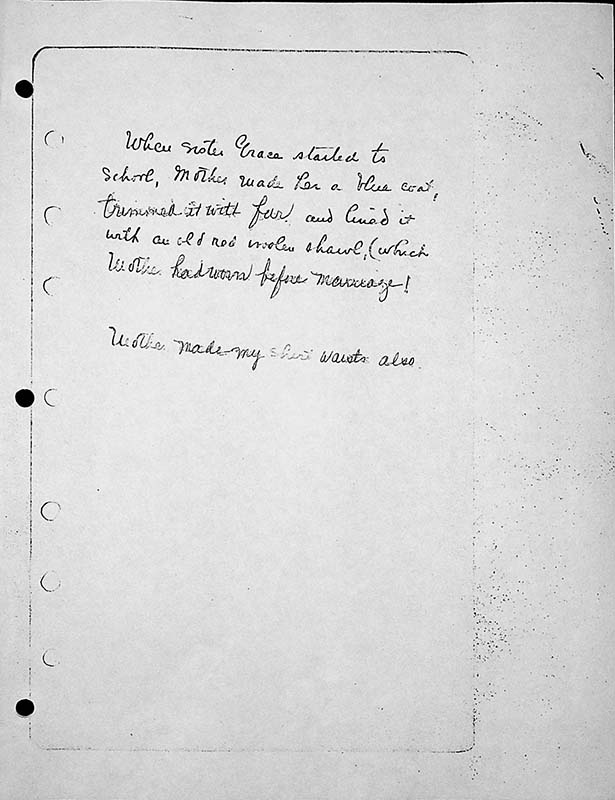 When sister Grace started to
School, Mother made her a blue coat,
trimmed it with fur, and lined it
with an old red woolen shawl, (which
Mother had worn before marriage!
Mother made my shirt waists also.